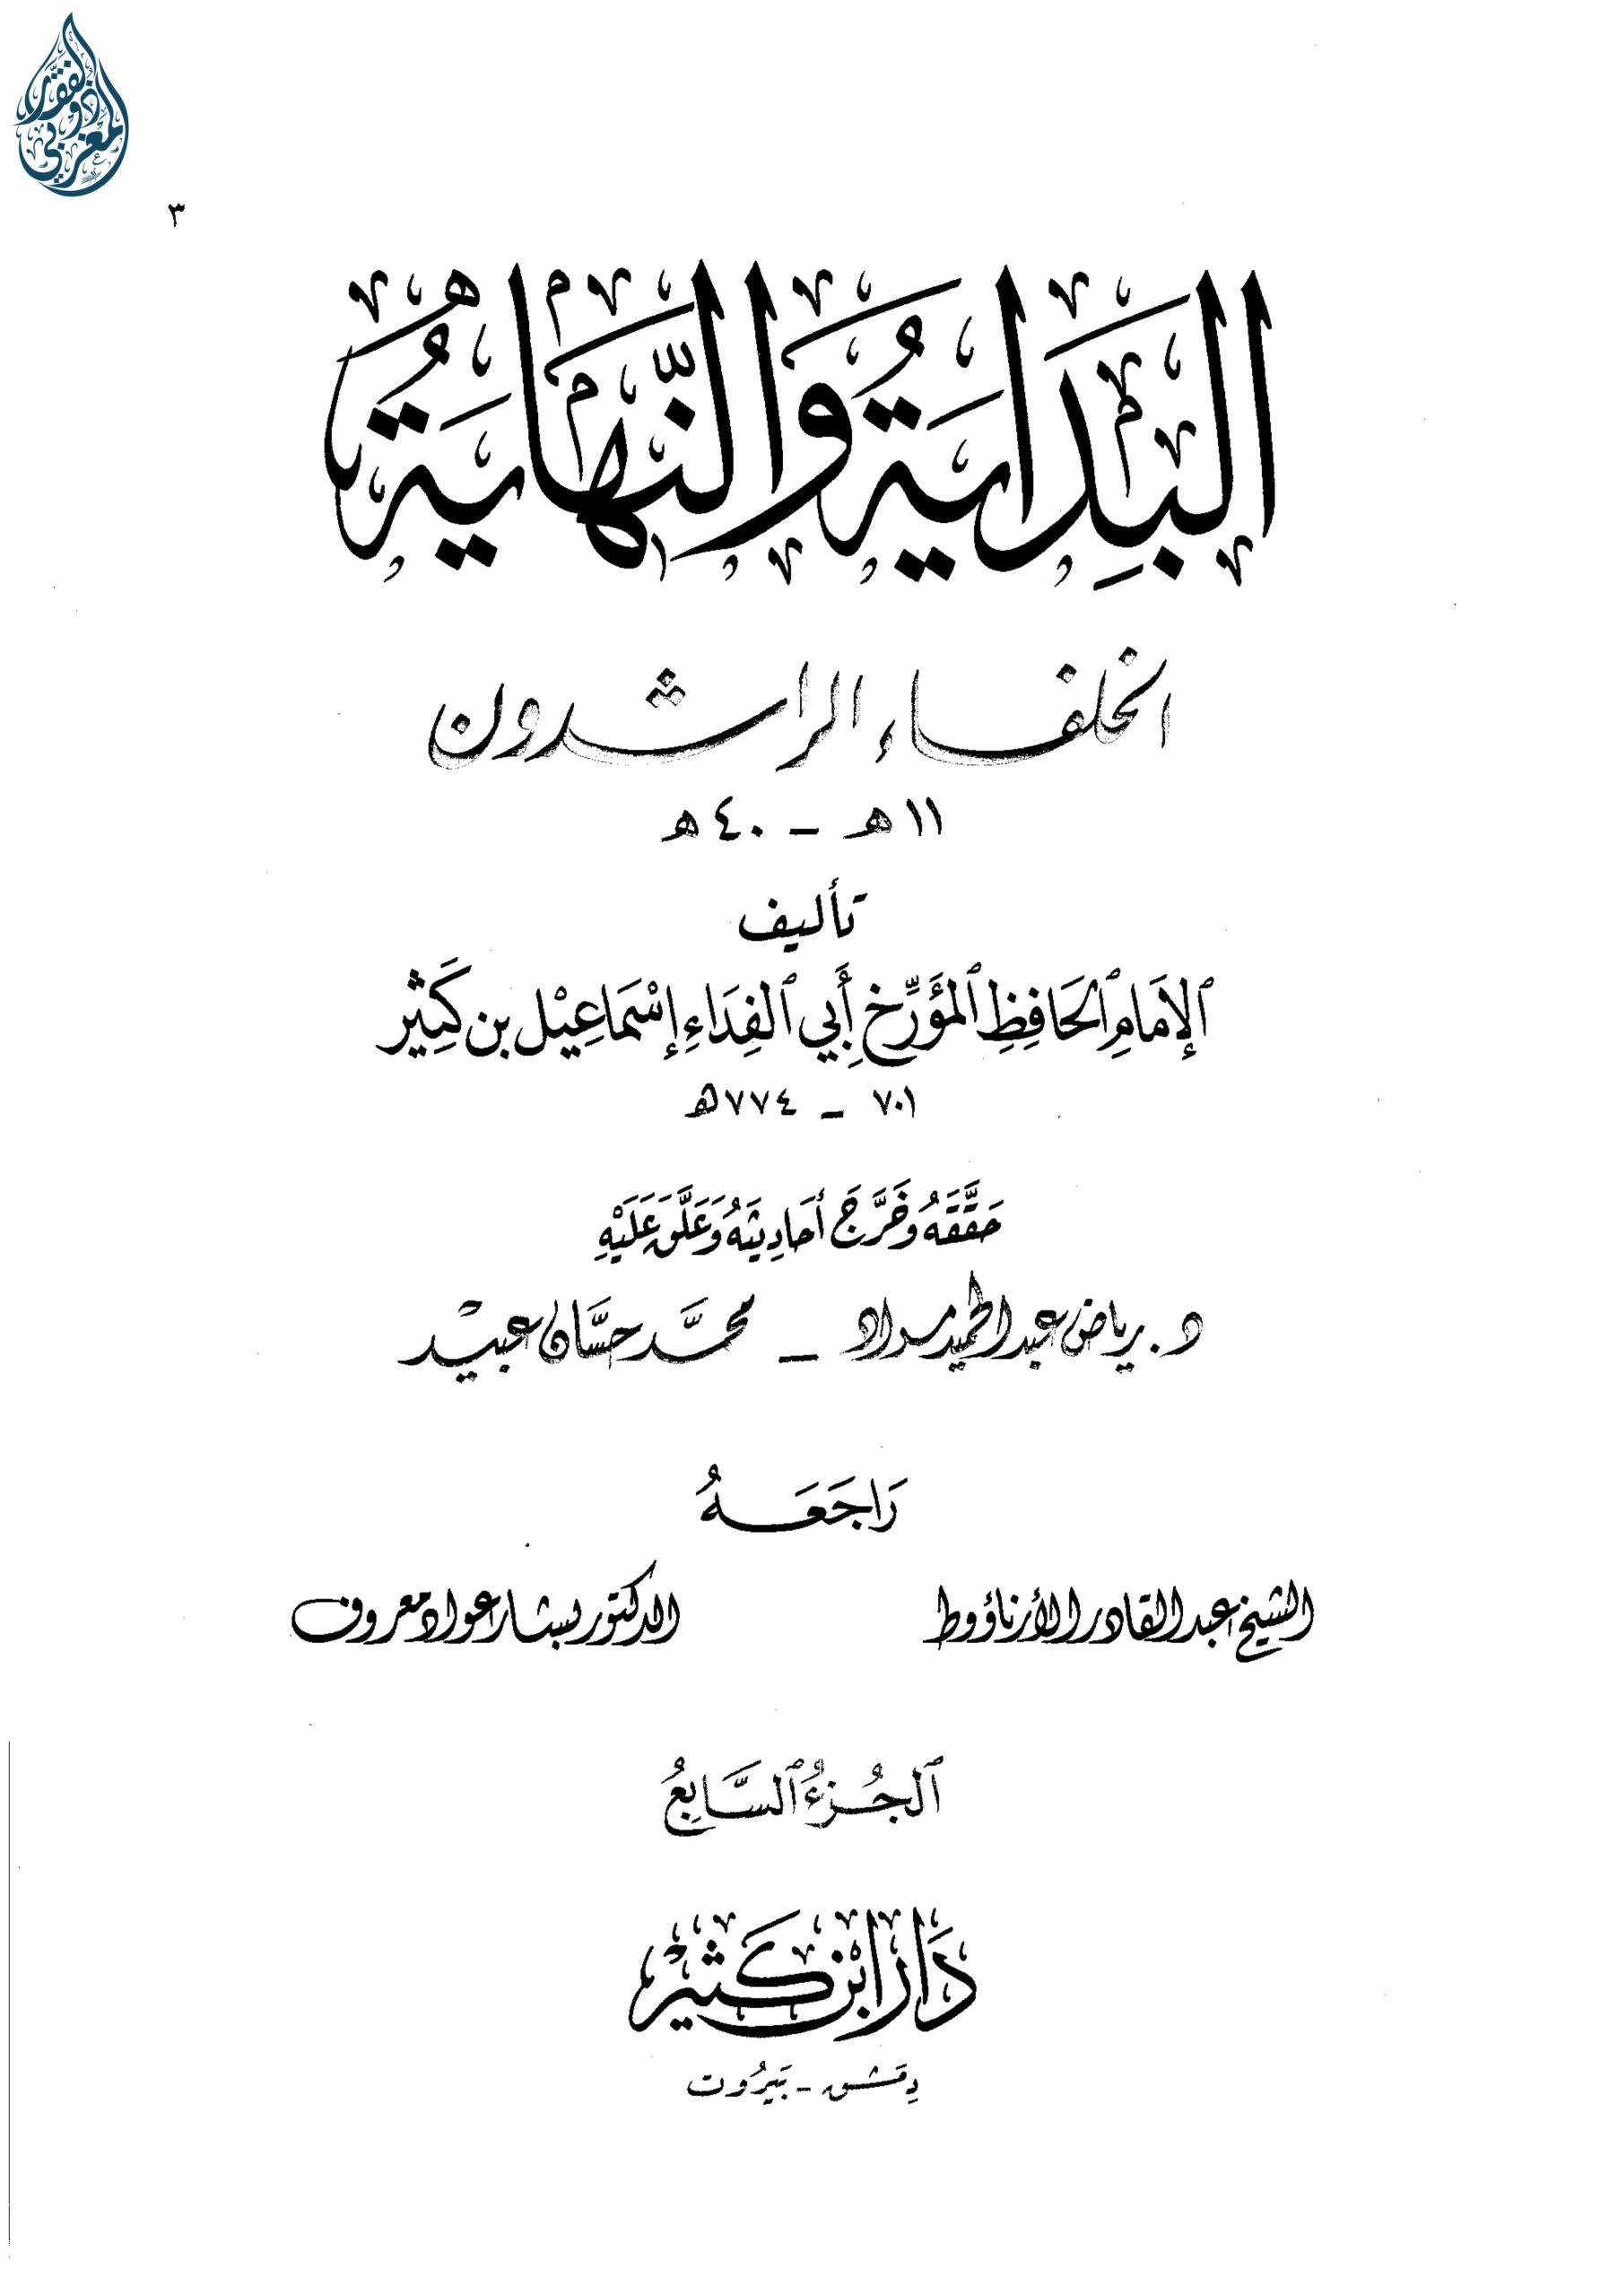 ٣
البِدَايَةُ وَالنِّهَايَةُ
الخلفاء الراشدون
١١ هـ – ٤٠ هـ
تأليف
الإمَامِ الحَافِظِ المؤَرِّخ أَبي الفِدَاءِ إسْمَاعِيْل بن كَثِير
٧٠١ – ٧٧٤هـ
حَقَّقَهُ وَخَرَّجَ أحَادِيثَهُ وَعَلَّقَ عَلَيْهِ
د. رياض عبد الحميد مراد – محمَّد حسَّان عبيْد
رَاجَعَهُ
الشيخ عبد القادر الأرناؤوط الدكتور بشار عواد معروف
الجُزءُ السَّابِعُ
دَار ابْن كَثِيْر
دِمَشق - بَيرُوت